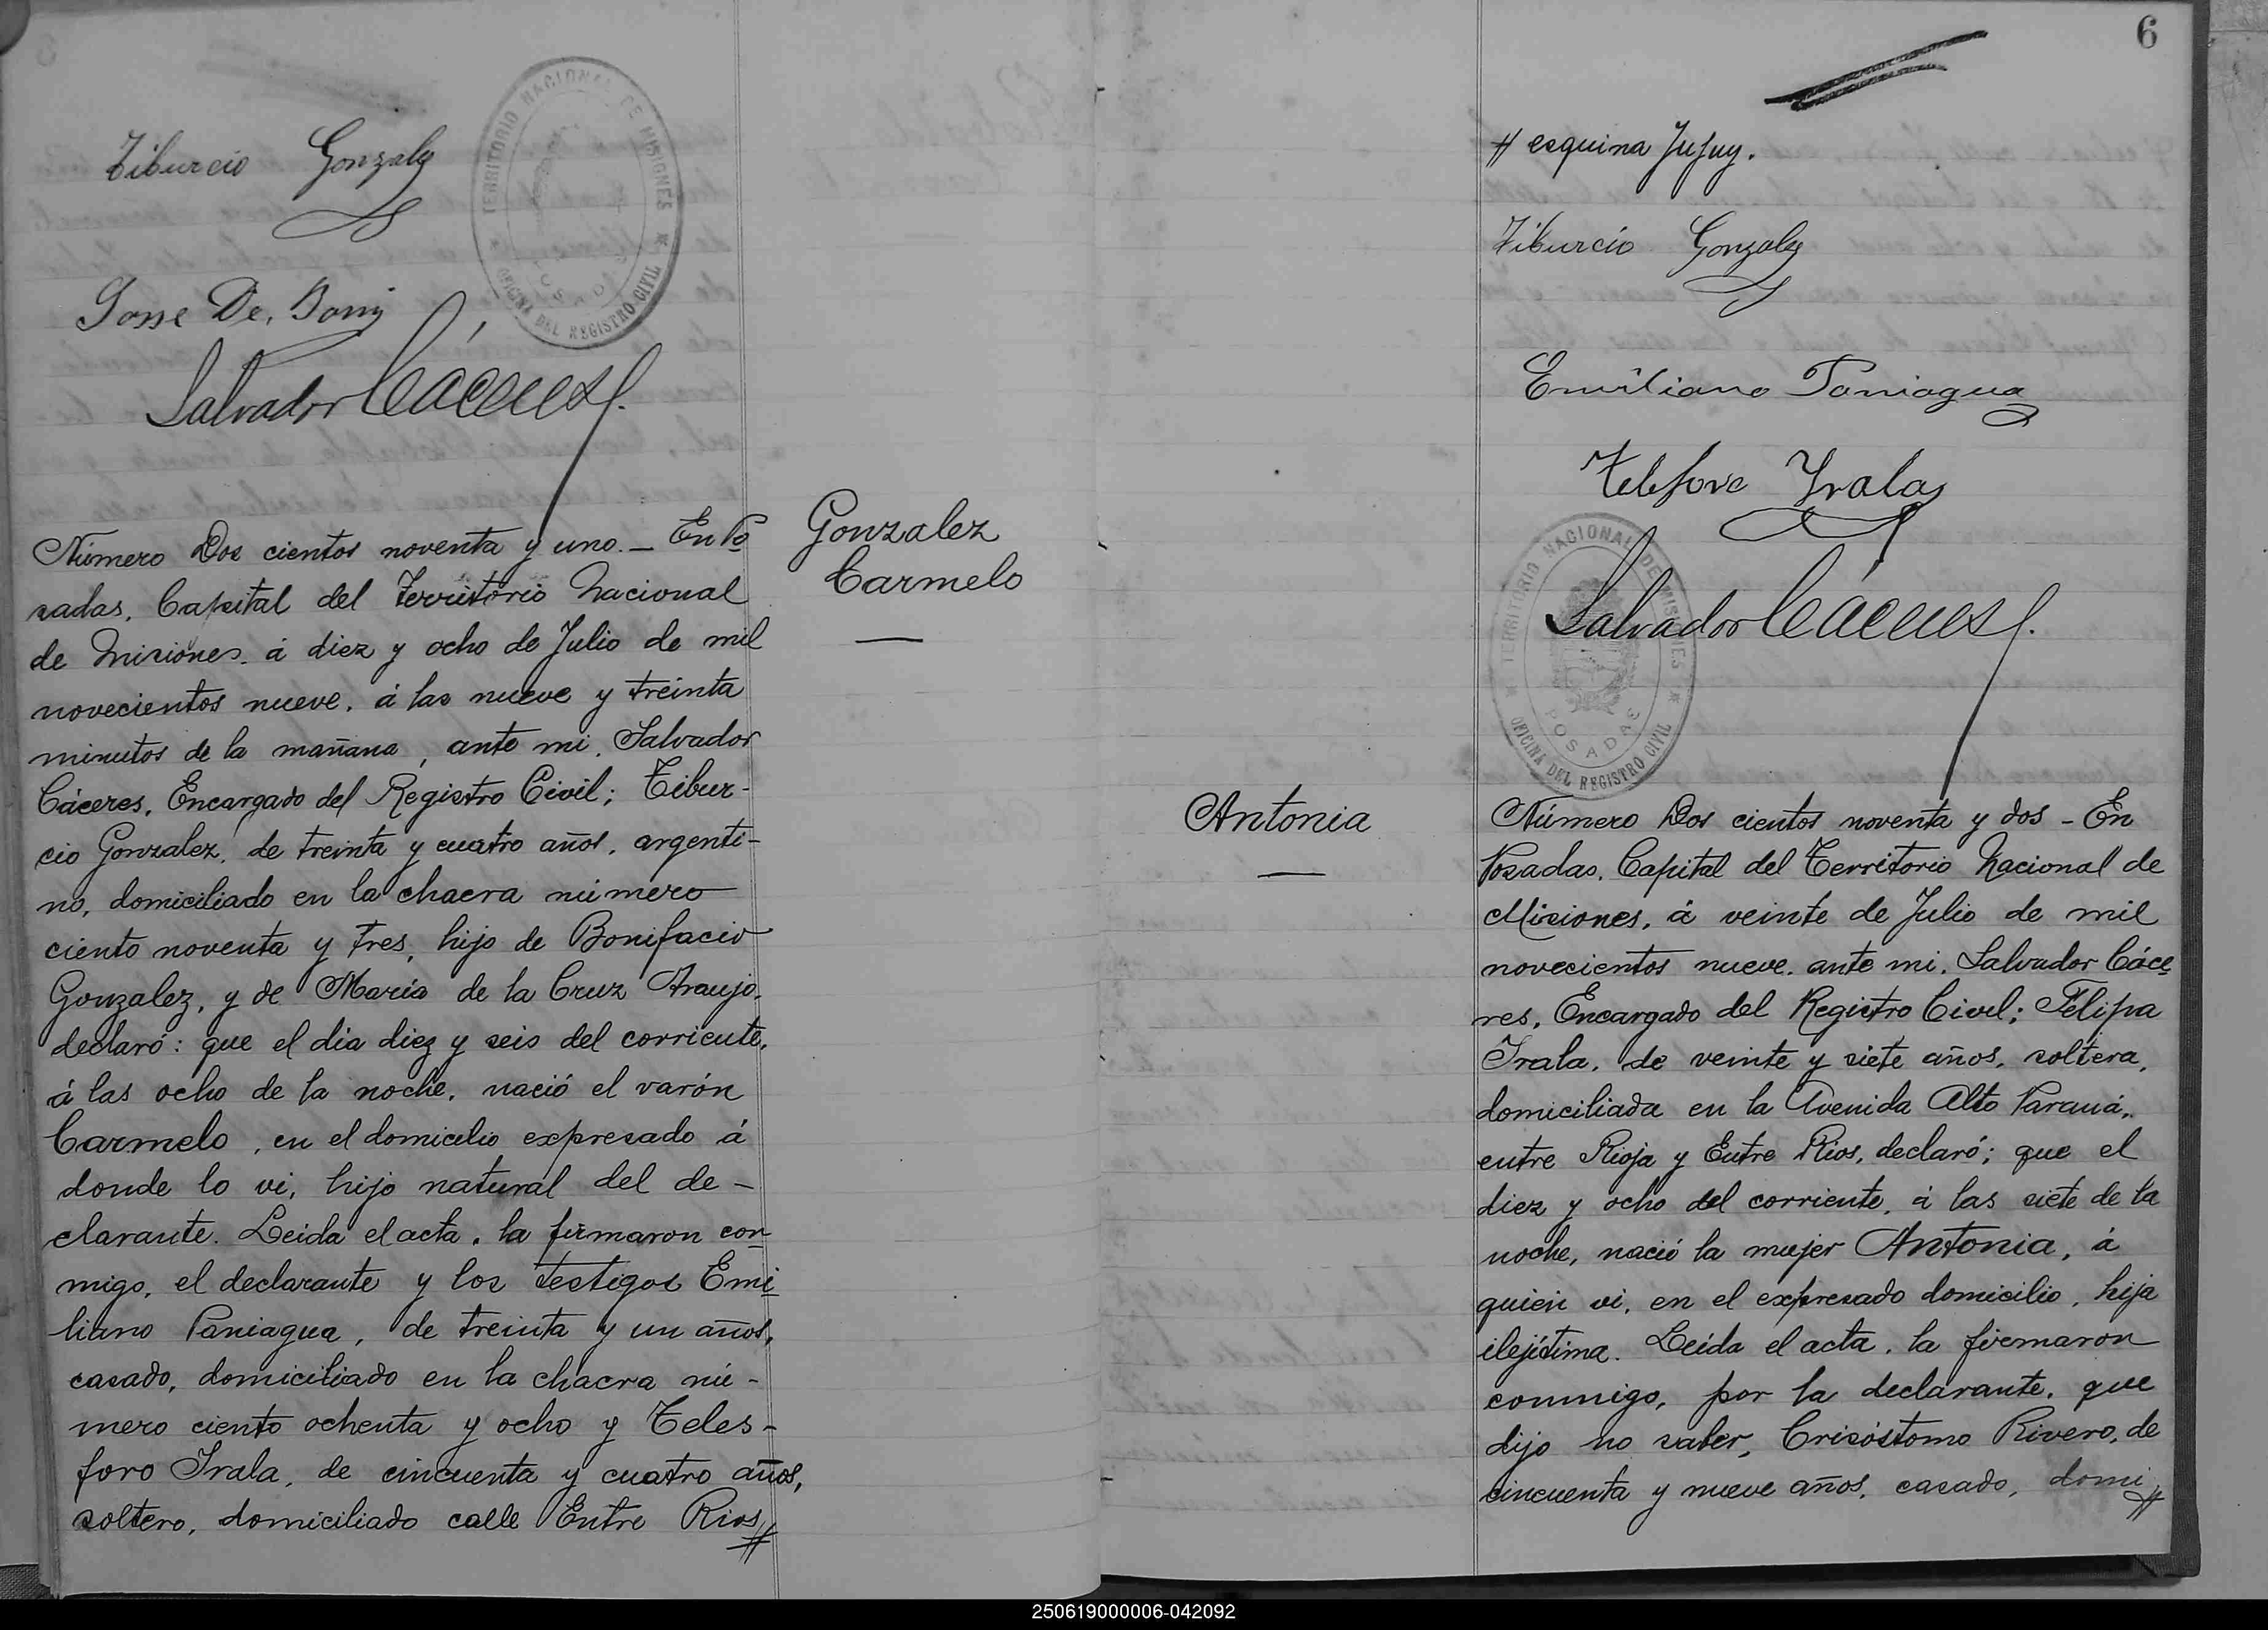 Tiburcio Gonzalez
TERRITORIO NACIONAL DE MISIONES
POSADAS
OFICINA DEL REGISTRO CIVIL
Salvador Cáceres
Número Dos cientos noventa y uno. — En Po
sadas, Capital del Territorio Nacional
de Misiones, á diez y ocho de Julio de mil
novecientos nueve, á las nueve y treinta
minutos de la mañana, ante mi, Salvador
Cáceres, Encargado del Registro Civil; Tibur-
cio Gonzalez, de treinta y cuatro años, argenti-
no, domiciliado en la chacra número
ciento noventa y tres, hijo de Bonifacio
Gonzalez, y de María de la Cruz Araujo,
declaró: que el dia diez y seis del corriente,
á las ocho de la noche, nació el varón
Carmelo, en el domicilio expresado á
donde lo vi, hijo natural del de-
clarante. Leida el acta, la firmaron con
migo, el declarante y los testigos Emi
liano Paniagua, de treinta y un años,
casado, domiciliado en la chacra nú-
mero ciento ochenta y ocho y Teles-
foro Irala, de cincuenta y cuatro años,
soltero, domiciliado calle Entre Rios //
Gonzalez
Carmelo
6
// esquina Jujuy.
Tiburcio Gonzalez
Emiliano Paniagua
Telesforo Yrala
Salvador Cáceres
TERRITORIO NACIONAL DE MISIONES
POSADAS
OFICINA DEL REGISTRO CIVIL
Antonia
Número Dos cientos noventa y dos - En
Posadas, Capital del Territorio Nacional de
Misiones, á veinte de Julio de mil
novecientos nueve, ante mi, Salvador Cáce
res, Encargado del Registro Civil; Felipa
Irala, de veinte y siete años, soltera,
domiciliada en la Avenida Alto Paraná,
entre Rioja y Entre Rios, declaró; que el
diez y ocho del corriente, á las siete de la
noche, nació la mujer Antonia, á
quien vi, en el expresado domicilio, hija
ilejítima. Leida el acta, la firmaron
conmigo, por la declarante, que
dijo no saber, Crisóstomo Rivero, de
cincuenta y nueve años, casado, domi //
250619000006-042092